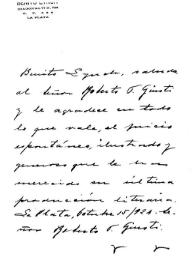 BENITO LYNCH
LA PLATA
Benito Lynch, saluda
al señor Roberto F. Giusti
y le agradece en todo
lo que vale, el juicio
espontáneo, ilustrado y
generoso que le ha
merecido su última
producción literaria.
La Plata, Octubre 15/924. Se-
ñor Roberto F. Giusti.